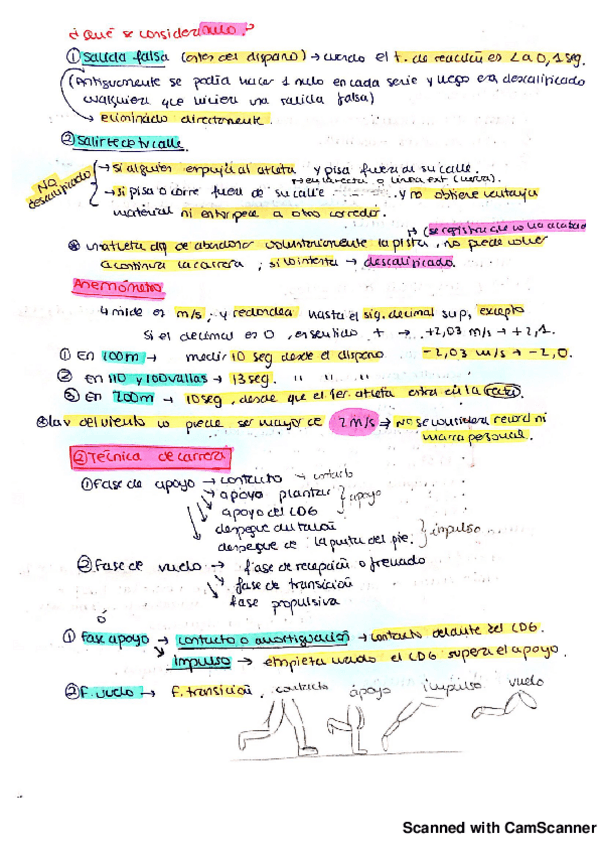 ¿Qué se considera nulo?
① Salida falsa (antes del disparo) → cuando el t. de reacción es < a 0,1 seg.
(Antiguamente se podía hacer 1 nulo en cada serie y luego era descalificado
cualquiera que hiciera una salida falsa)
→ eliminado directamente.
② Salirse de tu calle.
No descalificado
→ si alguien empuja al atleta y pisa fuera de su calle.
→ en la recta o línea ext (curva).
→ si pisa o corre fuera de su calle ... y no obtiene ventaja
material ni entorpece a otro corredor.
→ (se registra que no ha acabado
* un atleta dsq de abandonar voluntariamente la pista, no puede volver
a continuar la carrera, si lo intenta → descalificado.
Anemómetro
mide es m/s, y redondea hasta el sig. decimal sup, excepto
si el decimal es 0, en sentido + → +2,03 m/s → +2,1.
-2,03 m/s → -2,0.
① En 100m → medir 10 seg desde el disparo
② en 110 y 100 vallas → 13 seg. " " "
③ En 200m → 10 seg, desde que el 1er atleta entra en la recta.
* la v del viento no puede ser mayor de 2 m/s → No se considera record ni
marca personal.
② Técnica de carrera
① Fase de apoyo → contacto → contacto
→ apoyo plantar } apoyo
apoyo del CDG
despegue del talón } impulso
despegue de la punta del pie.
② Fase de vuelo → fase de recepción o frenado
→ fase de transición
→ fase propulsiva
ó
① Fase apoyo → contacto o amortiguación → contacto delante del CDG.
→ Impulso → empieza cuando el CDG supera el apoyo.
② F. vuelo → F. transición.
contacto apoyo impulso vuelo
Scanned with CamScanner